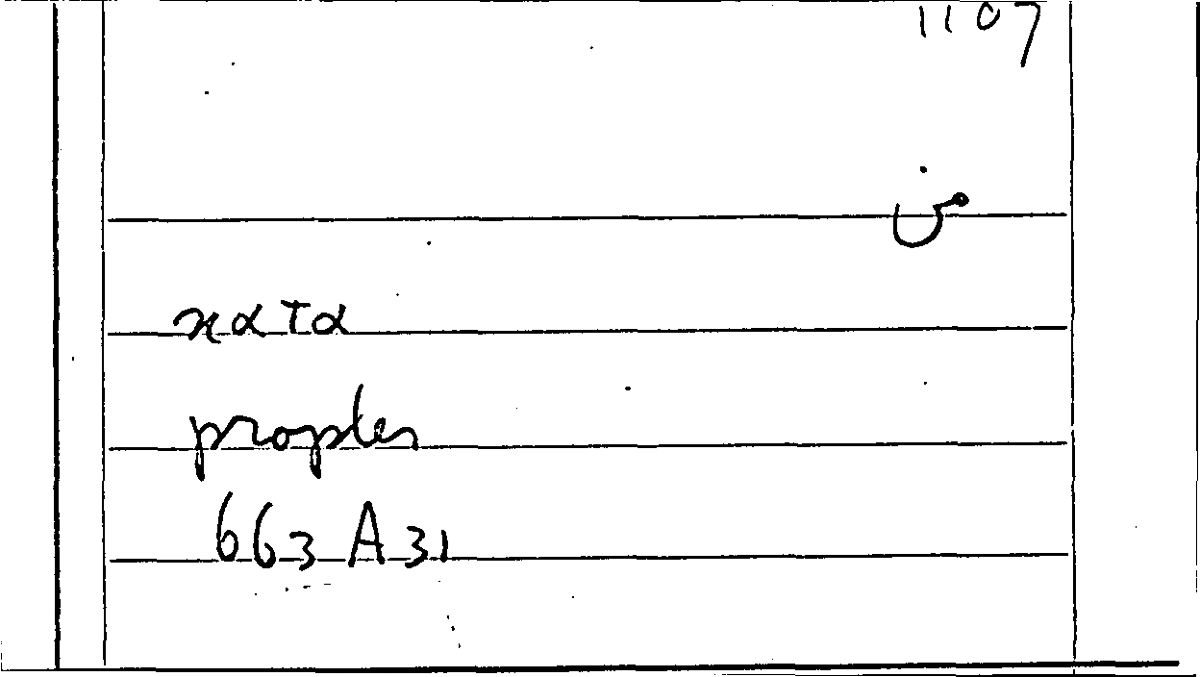 1107
من
κατα
propter
663 A 31